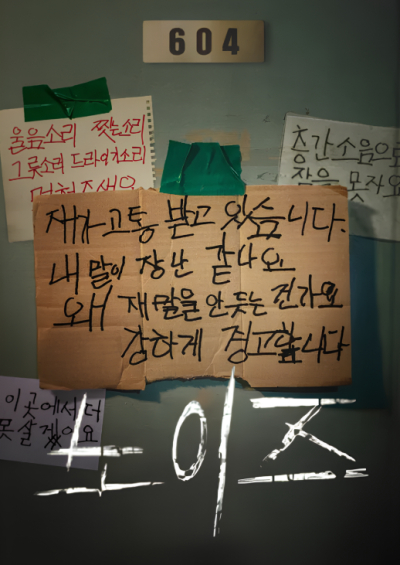 604
울음소리 찢는소리
그릇소리 드라이기소리
층간소음으로
잠을 못자요
재가 고통 받고 있습니다.
내 말이 장난 같나요
왜 재말을 안듣는 건가요
강하게 경고합니다
이 곳에서 더
못 살겠어요
노이즈